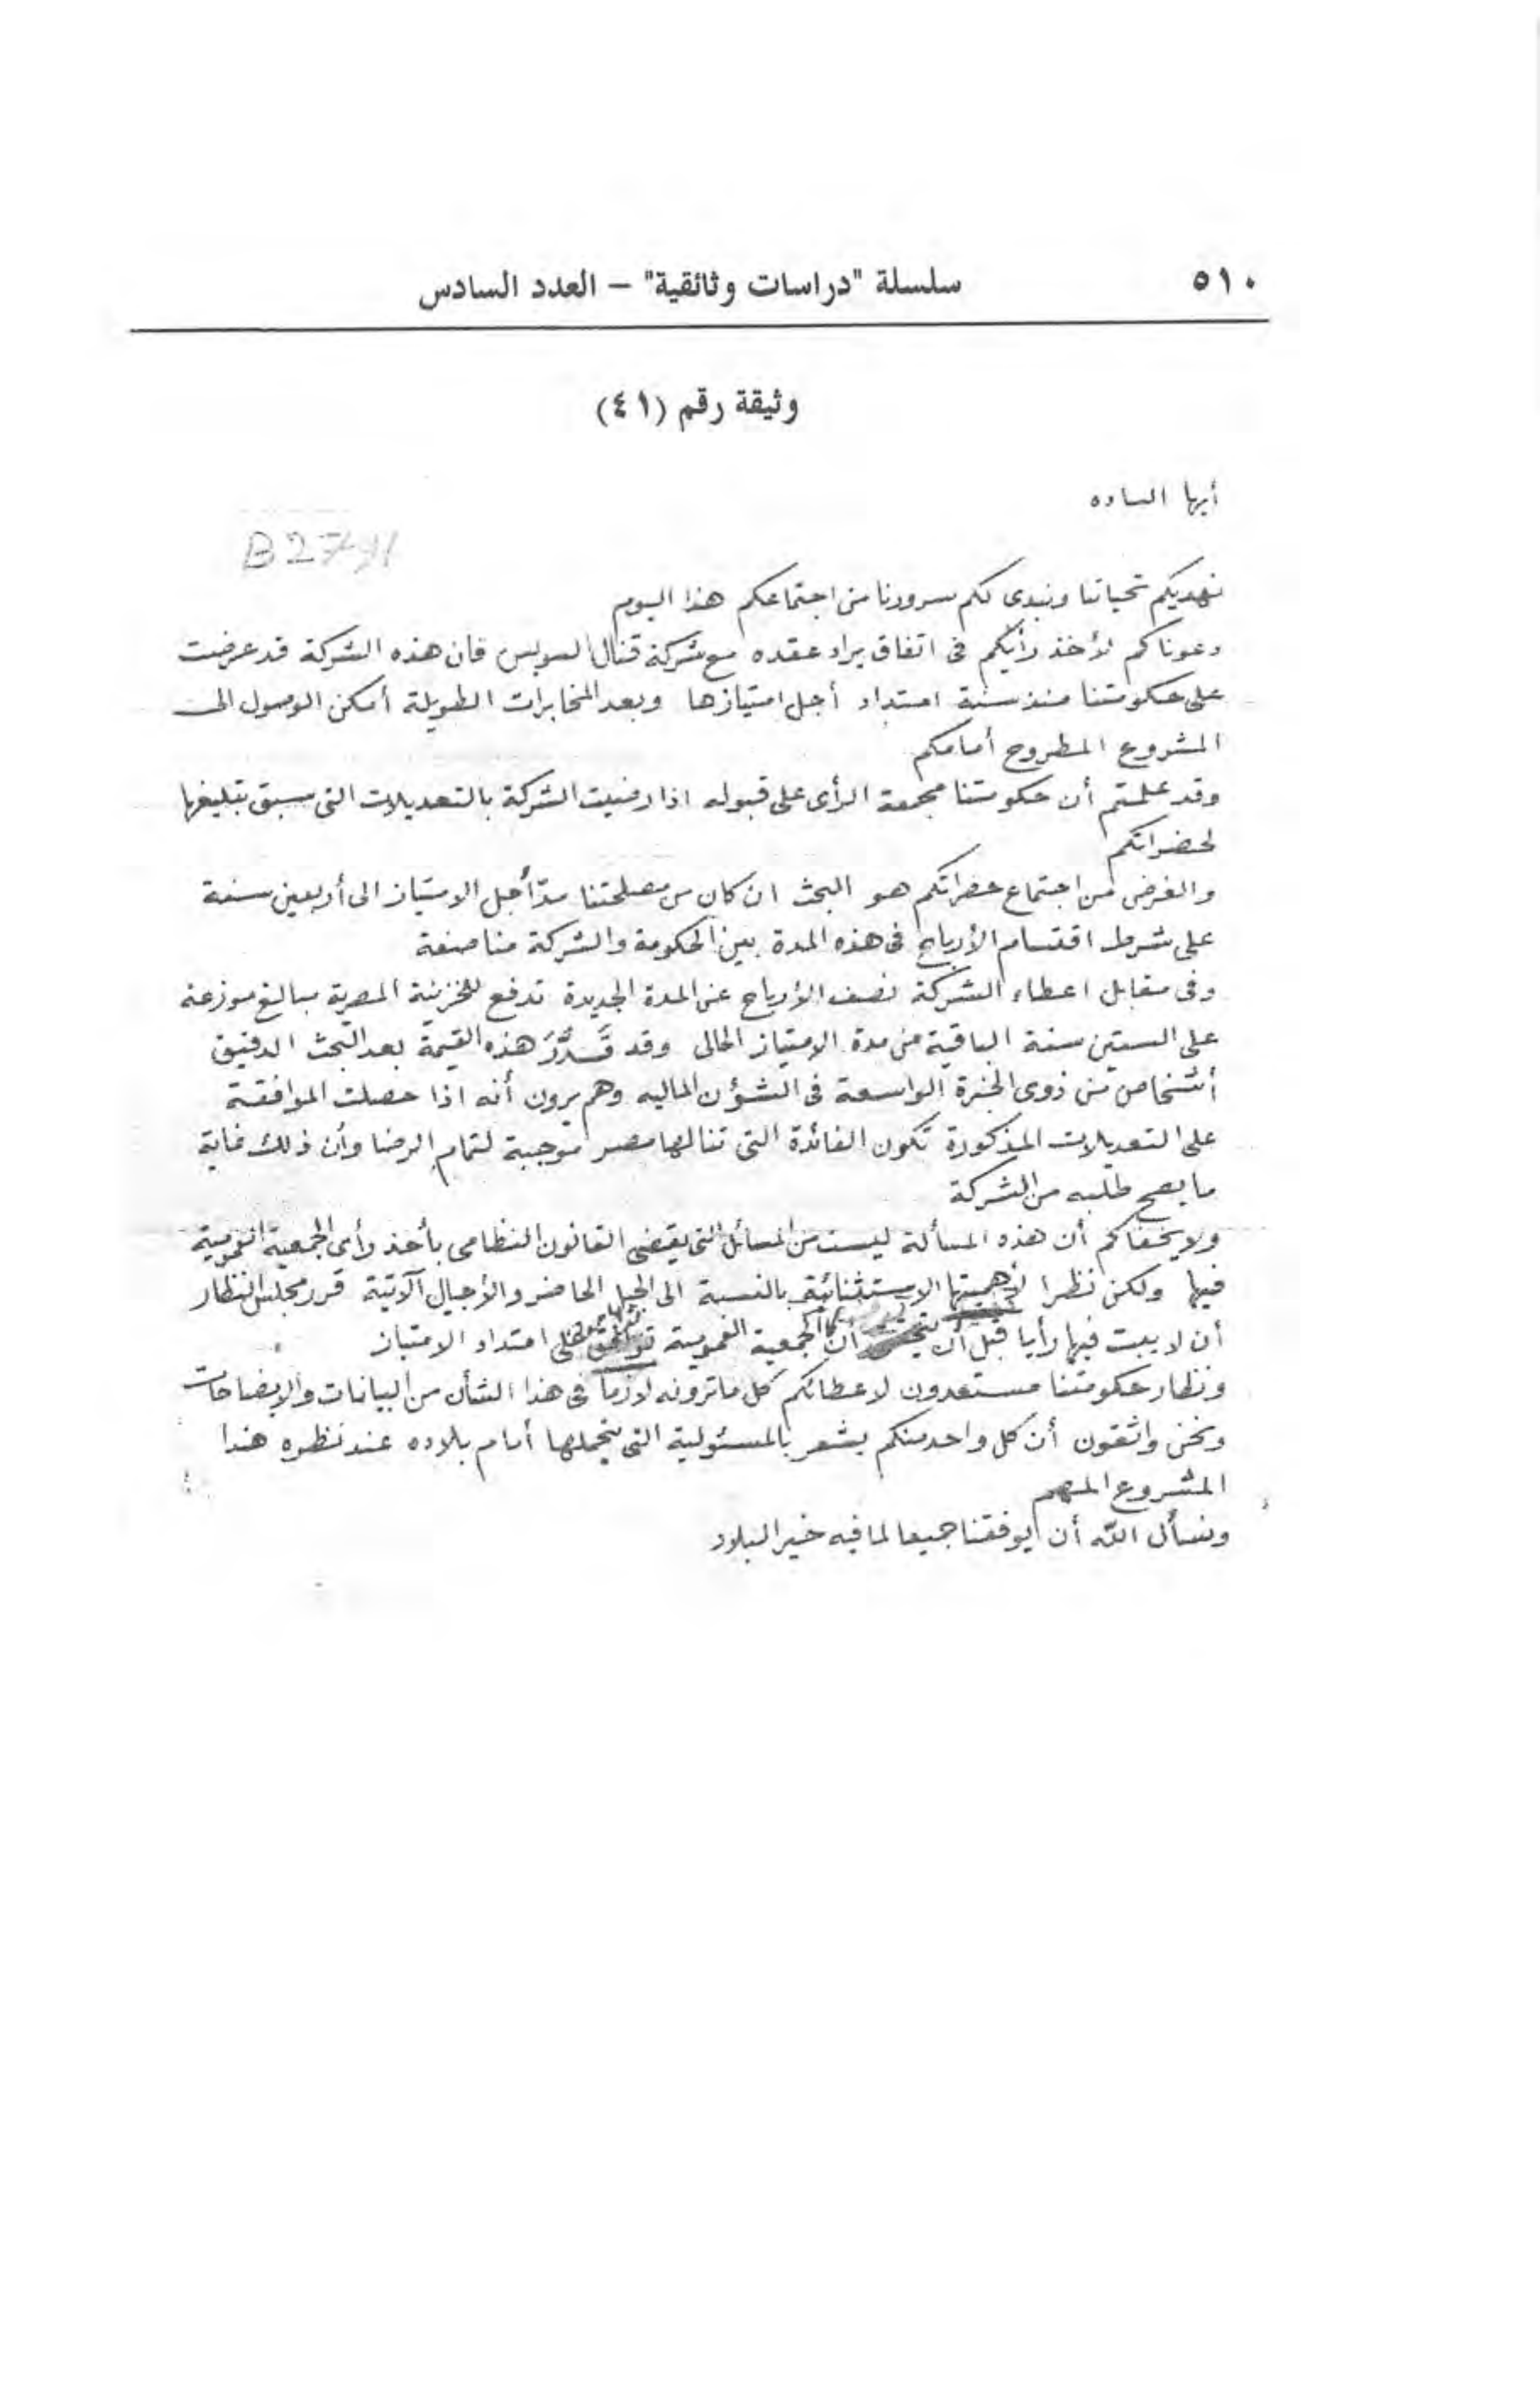 ٥١٠
سلسلة "دراسات وثائقية" – العدد السادس
وثيقة رقم (٤١)
أيها الساده
B27
نهديكم تحياتنا ونبدى لكم سرورنا من اجتماعكم هذا اليوم
دعوناكم لأخذ رأيكم فى اتفاق يراد عقده مع شركة قنال السويس فان هذه الشركة قد عرضت
على حكومتنا منذ سنة امتداد أجل امتيازها وبعد المخابرات الطويلة أمكن الوصول الى
المشروع المطروح أمامكم
وقد علمتم أن حكومتنا مجمعة الرأى على قبوله اذا رضيت الشركة بالتعديلات التى سبق تبليغها
لحضراتكم
والغرض من اجتماع حضراتكم هو البحث ان كان من مصلحتنا مدّ أجل الامتياز الى أربعين سنة
على شرط اقتسام الأرباح فى هذه المدة بين الحكومة والشركة مناصفة
وفى مقابل اعطاء الشركة نصف الأرباح عن المدة الجديدة تدفع للخزينة المصرية مبالغ موزعة
على الستين سنة الباقية من مدة الامتياز الحالى وقد قَدَّرَ هذه القيمة بعد البحث الدقيق
أشخاص من ذوى الخبرة الواسعة فى الشؤن الماليه وهم يرون أنه اذا حصلت الموافقة
على التعديلات المذكورة تكون الفائدة التى تنالها مصر موجبة لتمام الرضا وأن ذلك غاية
ما يصح طلبه من الشركة
ولا يخفاكم أن هذه المسألة ليست من المسائل التى يقضى القانون النظامى بأخذ رأى الجمعية العمومية
فيها ولكن نظرا لأهميتها الاستثنائية بالنسبة الى الجيل الحاضر والأجيال الآتية قرر مجلس النظار
أن لا يبت فيها رأيا قبل أن الجمعية العمومية على امتداد الامتياز
ونظار حكومتنا مستعدون لاعطائكم كل ما ترونه لازما فى هذا الشأن من البيانات والايضاحات
ونحن واثقون أن كل واحد منكم يشعر بالمسئولية التى يتحملها أمام بلاده عند نظره هذا
المشروع المهم
ونسأل الله أن يوفقنا جميعا لما فيه خير البلاد